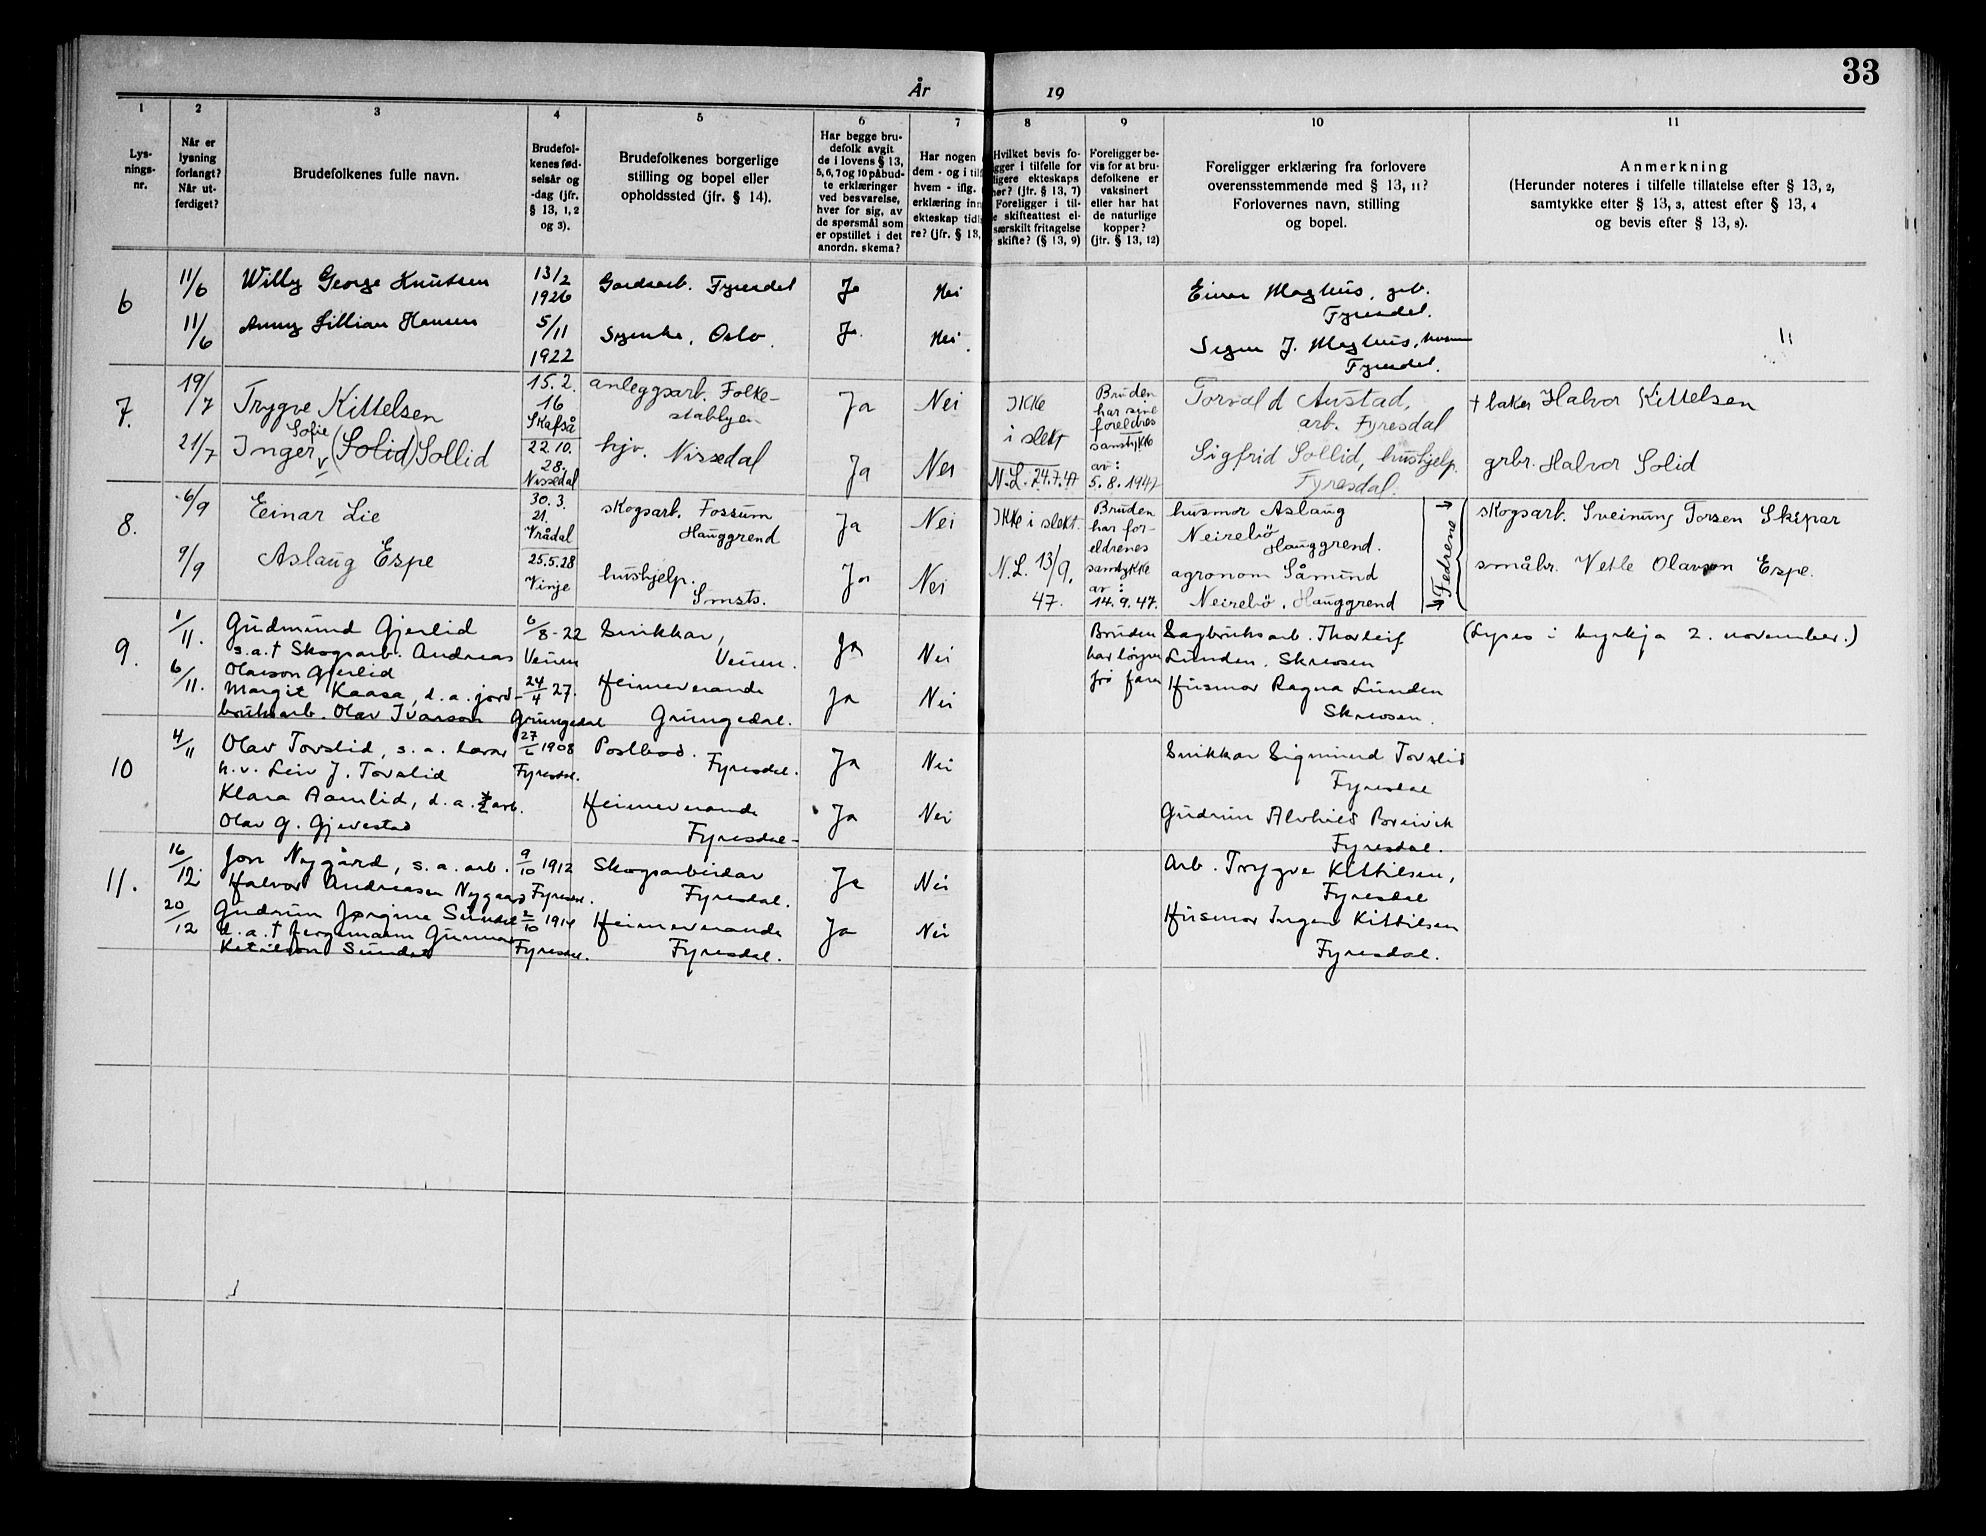 33
År 19
1 2 3 4 5 6 7 8 9 10 11
Lys-
nings-
nr.
Når er
lysning
forlangt?
Når ut-
ferdiget?
Brudefolkenes fulle navn.
Brudefol-
kenes fød-
selsår og
-dag (jfr.
§ 13, 1, 2
og 3).
Brudefolkenes borgerlige
stilling og bopel eller
opholdssted (jfr. § 14).
Har begge bru-
defolk avgit
de i lovens § 13,
5, 6, 7 og 10 påbud-
te erklæringer
ved besvarelse,
hver for sig, av
de spørsmål som
er opstillet i det
anordn. skema?
Har nogen
dem - og i tilf
hvem - iflg.
erklæring inn
ekteskap tidl
re? (jfr. § 13,
Hvilket bevis fo-
gger i tilfelle for
ligere ekteskaps
hør? (jfr. § 13, 7)
Foreligger i til-
e skifteattest el-
særskilt fritagelse
skifte? (§ 13, 9)
Foreligger be-
vis for at bru-
defolkene er
vaksinert
eller har hat
de naturlige
kopper?
(jfr. § 13, 12)
Foreligger erklæring fra forlovere
overensstemmende med § 13, 11?
Forlovernes navn, stilling
og bopel.
Anmerkning
(Herunder noteres i tilfelle tillatelse efter § 13, 2,
samtykke efter § 13, 3, attest efter § 13, 4
og bevis efter § 13, 8).
6
11/6 Willy George Knutsen 13/2 1926 Gardsarb. Fyresdal Ja Nei Einar Moghus, grb.
Fyresdal.
11/6 Anny Lillian Hansen 5/11 1922 Syerske, Oslo. Ja Nei. Signe J. Moghus,
Fyresdal.
7.
19/7 Trygve Kittelsen 15.2. 16 Skafså anleggsarb. Folke-
stadbyen Ja Nei Ikke
i slekt
Bruden
har sine
foreldres
samtykke
av:
5.8.1947
Torvald Austad,
arb. Fyresdal
† baker Halvor Kittelsen
21/7 Inger Sofie (Solid) Sollid 22.10. 28. Nissedal hjv. Nissedal Ja Nei N.L. 24.7.47 Sigfrid Sollid, hushjelp.
Fyresdal.
grbr. Halvor Solid
8.
6/9 Einar Lie 30.3. 21. Vrådal skogsarb. Fossum
Hauggrend Ja Nei Ikke i slekt.
Bruden
har for-
eldrenes
samtykke
av:
14.9.47.
husmor Aslaug
Neirebö
Hauggrend.
Fedrene
skogsarb. Sveinung Torsen Skipar
9/9 Aslaug Espe 25.5.28 Vinje hushjelp.
Smsts. Ja Nei N.L. 13/9.
47.
agronom Såmund
Neirebö, Hauggrend
småbr. Vetle Olavson Espe.
9.
1/11. Gudmund Gjerlid
s.a.† Skogsarb. Andreas
Olavson Gjerlid
6/8-22 Veum Snikkar,
Veum. Ja Nei
Bruden
har løyve
frå faren
Sagbruksarb. Thorleif
Lunden. Skreosen
(Lyses i kyrkja 2. november.)
6/11. Margit Kaasa, d.a. jord-
bruksarb. Olav Ivarson
24/4 27. Grungedal Heimeverande
Grungedal. Ja Nei Husmor Ragna Lunden
Skreosen.
10
4/11 Olav Torslid, s.a. lærar
h.v. Leiv J. Torslid
27/6 1908 Fyresdal. Postbod.
Fyresdal. Ja Nei Snikkar Sigmund Torslid
Fyresdal
Klara Aamlid, d.a. arb.
Olav G. Gjevestad
Heimeverande
Fyresdal- Ja Nei Gudrun Alvhild Breivik
Fyresdal.
11.
16/12. Jon Nygård, s.a. arb.
Halvor Andreasen Nygaard
9/10 1912 Fyresdal. Skogsarbeidar
Fyresdal. Ja Nei Arb. Trygve Kittilsen,
Fyresdal
20/12 Gudrun Jørgine Sundet
d.a.† fergemann Gunnar
Ketilson Sundet
2/10 1914 Fyresdal. Heimeverande
Fyresdal. Ja Nei Husmor Inger Kittilsen
Fyresdal.